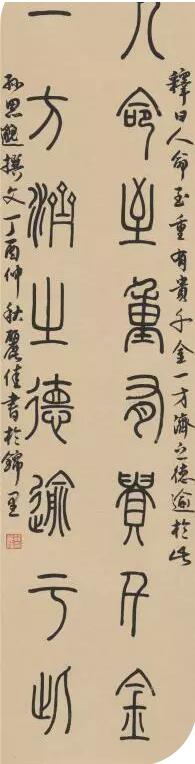 釋曰人命至重有貴千金一方濟之德逾於此
人命至重有貴千金
一方濟之德逾于此
孫思邈撰文丁酉仲秋麗佳書於錦里